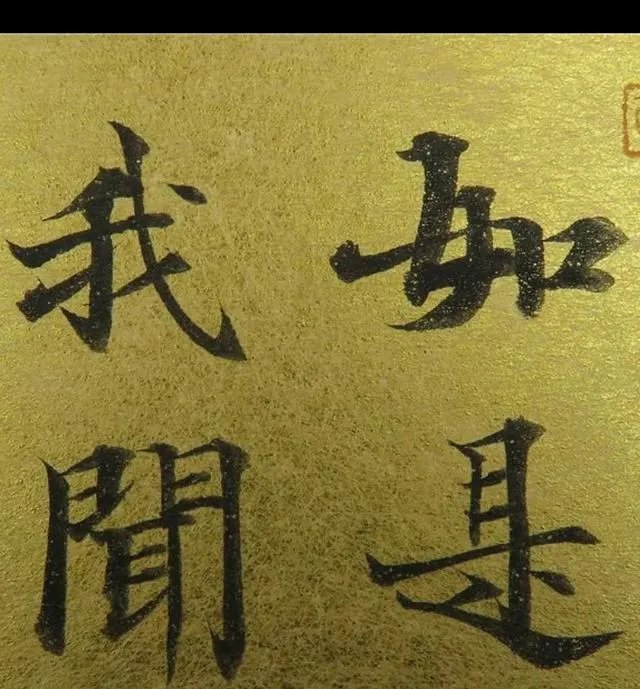 如是
我聞